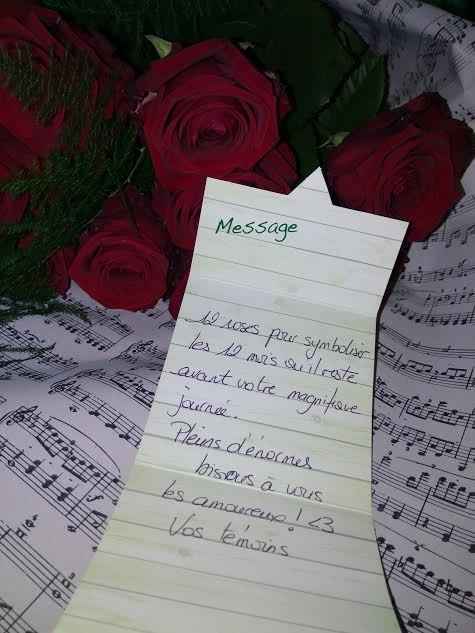 Message
12 roses pour symboliser
les 12 mois qu'il reste
avant votre magnifique
journée.
Pleins d'énormes
bisous à vous
les amoureux ! <3
Vos témoins